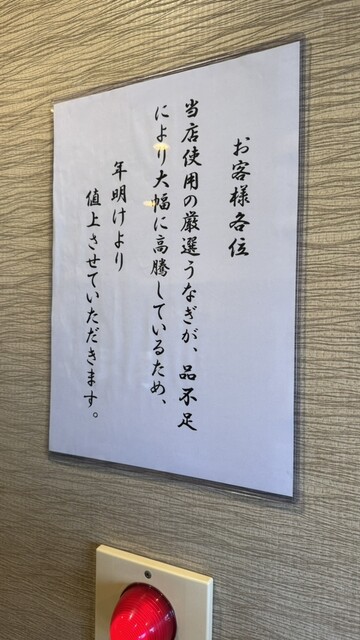 お客様各位
当店使用の厳選うなぎが、品不足
により大幅に高騰しているため、
年明けより
値上させていただきます。